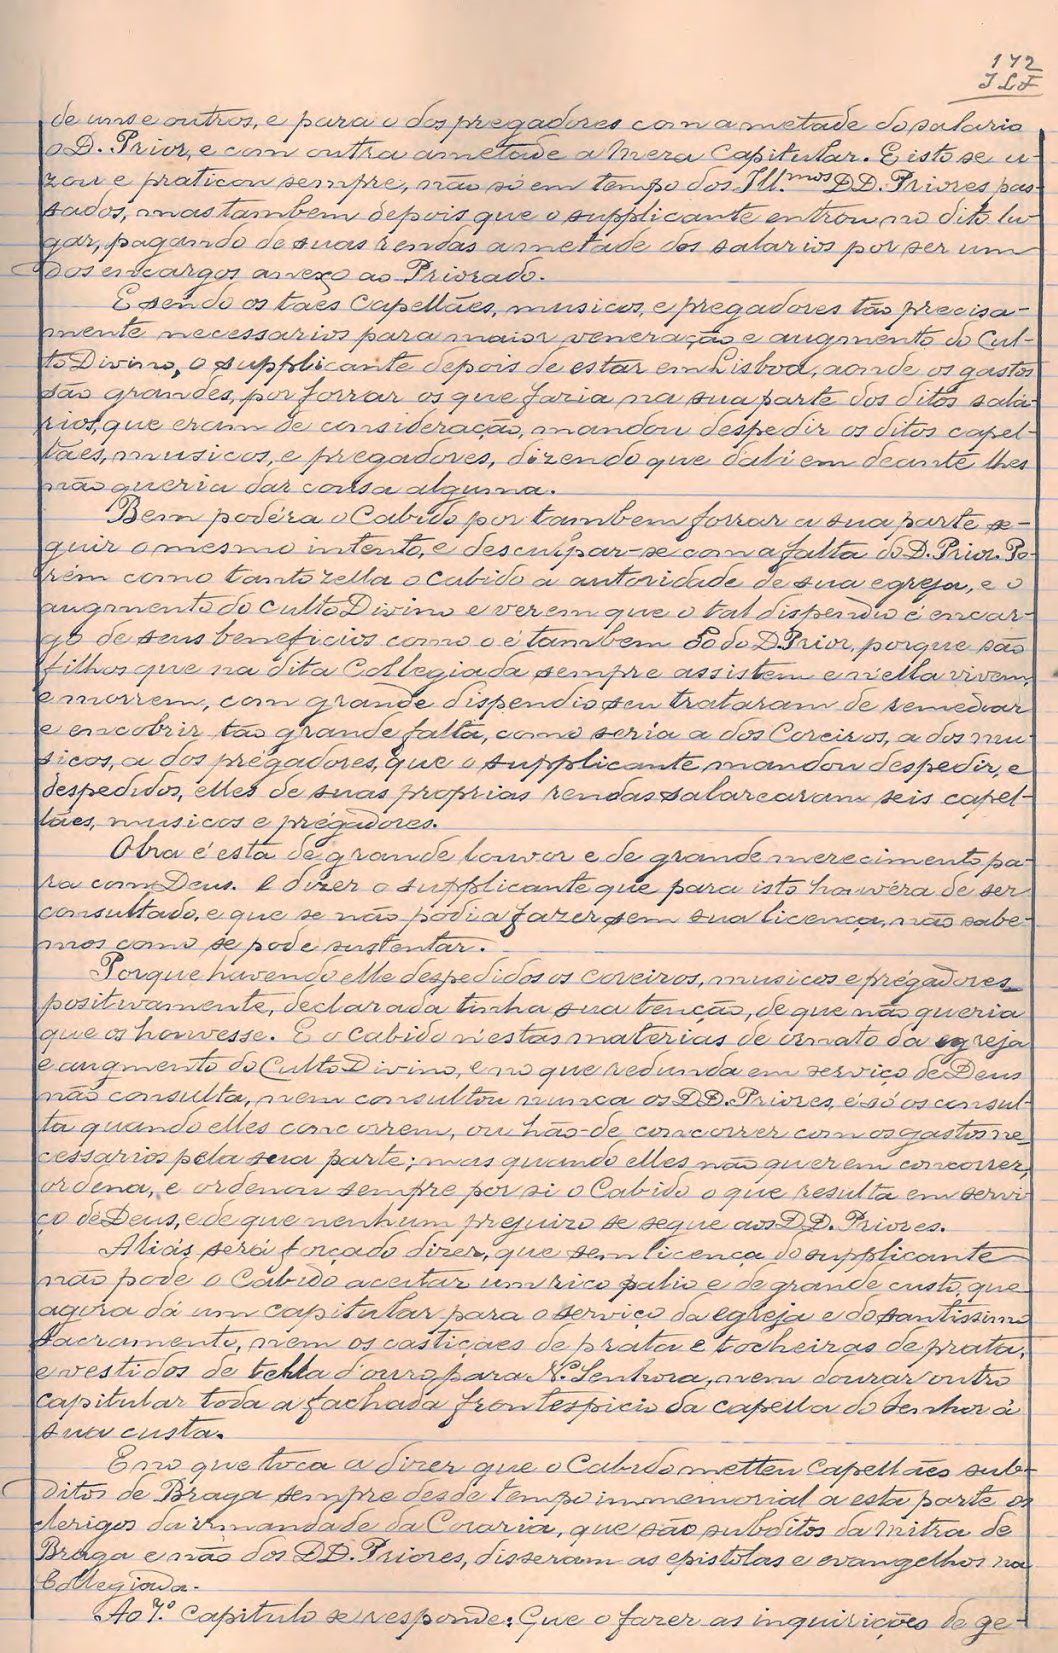 172
JLF
de uns e outros, e para o dos pregadores com ametade do salario
o D. Prior, e com outra ametade a Meza Capitular. E isto se u-
zou e praticou sempre, não só em tempo dos Ill.mos DD. Priores pas-
sados, mas tambem depois que o supplicante entrou no dito lu-
gar, pagando de suas rendas ametade dos salarios por ser um
dos encargos anexo ao Priorado.
E sendo os taes Capellães, musicos, e pregadores tão precisa-
mente necessarios para maior veneração e augmento do Cul-
to Divino, o supplicante depois de estar em Lisboa, aonde os gastos
são grandes, por forrar os que faria na sua parte dos ditos sala-
rios, que eram de consideração, mandou despedir os ditos capel-
lães, musicos, e pregadores, dizendo que d'ali em deante lhes
não queria dar cousa alguma.
Bem podéra o Cabido por tambem forrar a sua parte se-
guir o mesmo intento, e desculpar-se com a falta do D. Prior. Po-
rém como tanto zella o Cabido a autoridade de sua egreja, e o
augmento do culto Divino e verem que o tal dispendio é encar-
go de seus beneficios como o é tambem do D. Prior, porque são
filhos que na dita Collegiada sempre assistem e n'ella vivem,
e morrem, com grande dispendio seu trataram de remediar
e encobrir tão grande falta, como seria a dos Coreiros, a dos mu-
sicos, a dos prégadores, que o supplicante mandou despedir, e
despedidos, elles de suas proprias rendas salarearam seis capel-
lães, musicos e prégadores.
Obra é esta de grande louvor e de grande merecimento pa-
ra com Deus. E dizer o supplicante que para isto houvéra de ser
consultado, e que se não podia fazer sem sua licença, não sabe-
mos como se pode sustentar.
Porque havendo elle despedidos os coreiros, musicos e prégadores
positivamente, declarada tinha sua tenção, de que não queria
que os houvesse. E o Cabido n'estas materias de ornato da egreja
e augmento do Culto Divino, e no que redunda em serviço de Deus
não consulta, nem consultou nunca os DD. Priores, e só os consul-
ta quando elles concorrem, ou hão-de concorrer com os gastos ne-
cessarios pela sua parte; mas quando elles não querem concorrer,
ordena, e ordenou sempre por si o Cabido o que resulta em servi-
ço de Deus, e de que nenhum prejuizo se segue aos DD. Priores.
Aliás será forçado dizer, que sem licença do supplicante
não pode o Cabido aceitar um rico palio e de grande custo, que
agora dá um capitular para o serviço da egreja e do santissimo
sacramento, nem os castiçaes de prata e tocheiras de prata,
e vestidos de tella d'ouro para N.ª Senhora, nem dourar outro
capitular toda a fachada frontespicio da capella do Senhor á
sua custa.
E no que toca a dizer que o Cabido metteu Capellães sub-
ditos de Braga sempre desde tempo immemorial a esta parte os
clerigos da irmandade da Coraria, que são subditos da Mitra de
Braga e não dos DD. Priores, disseram as epistolas e evangelhos na
Collegiada.
Ao 7.º capitulo se responde: Que o fazer as inquirições de ge-